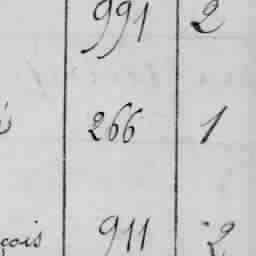 991 2
266 1
çois 911 2